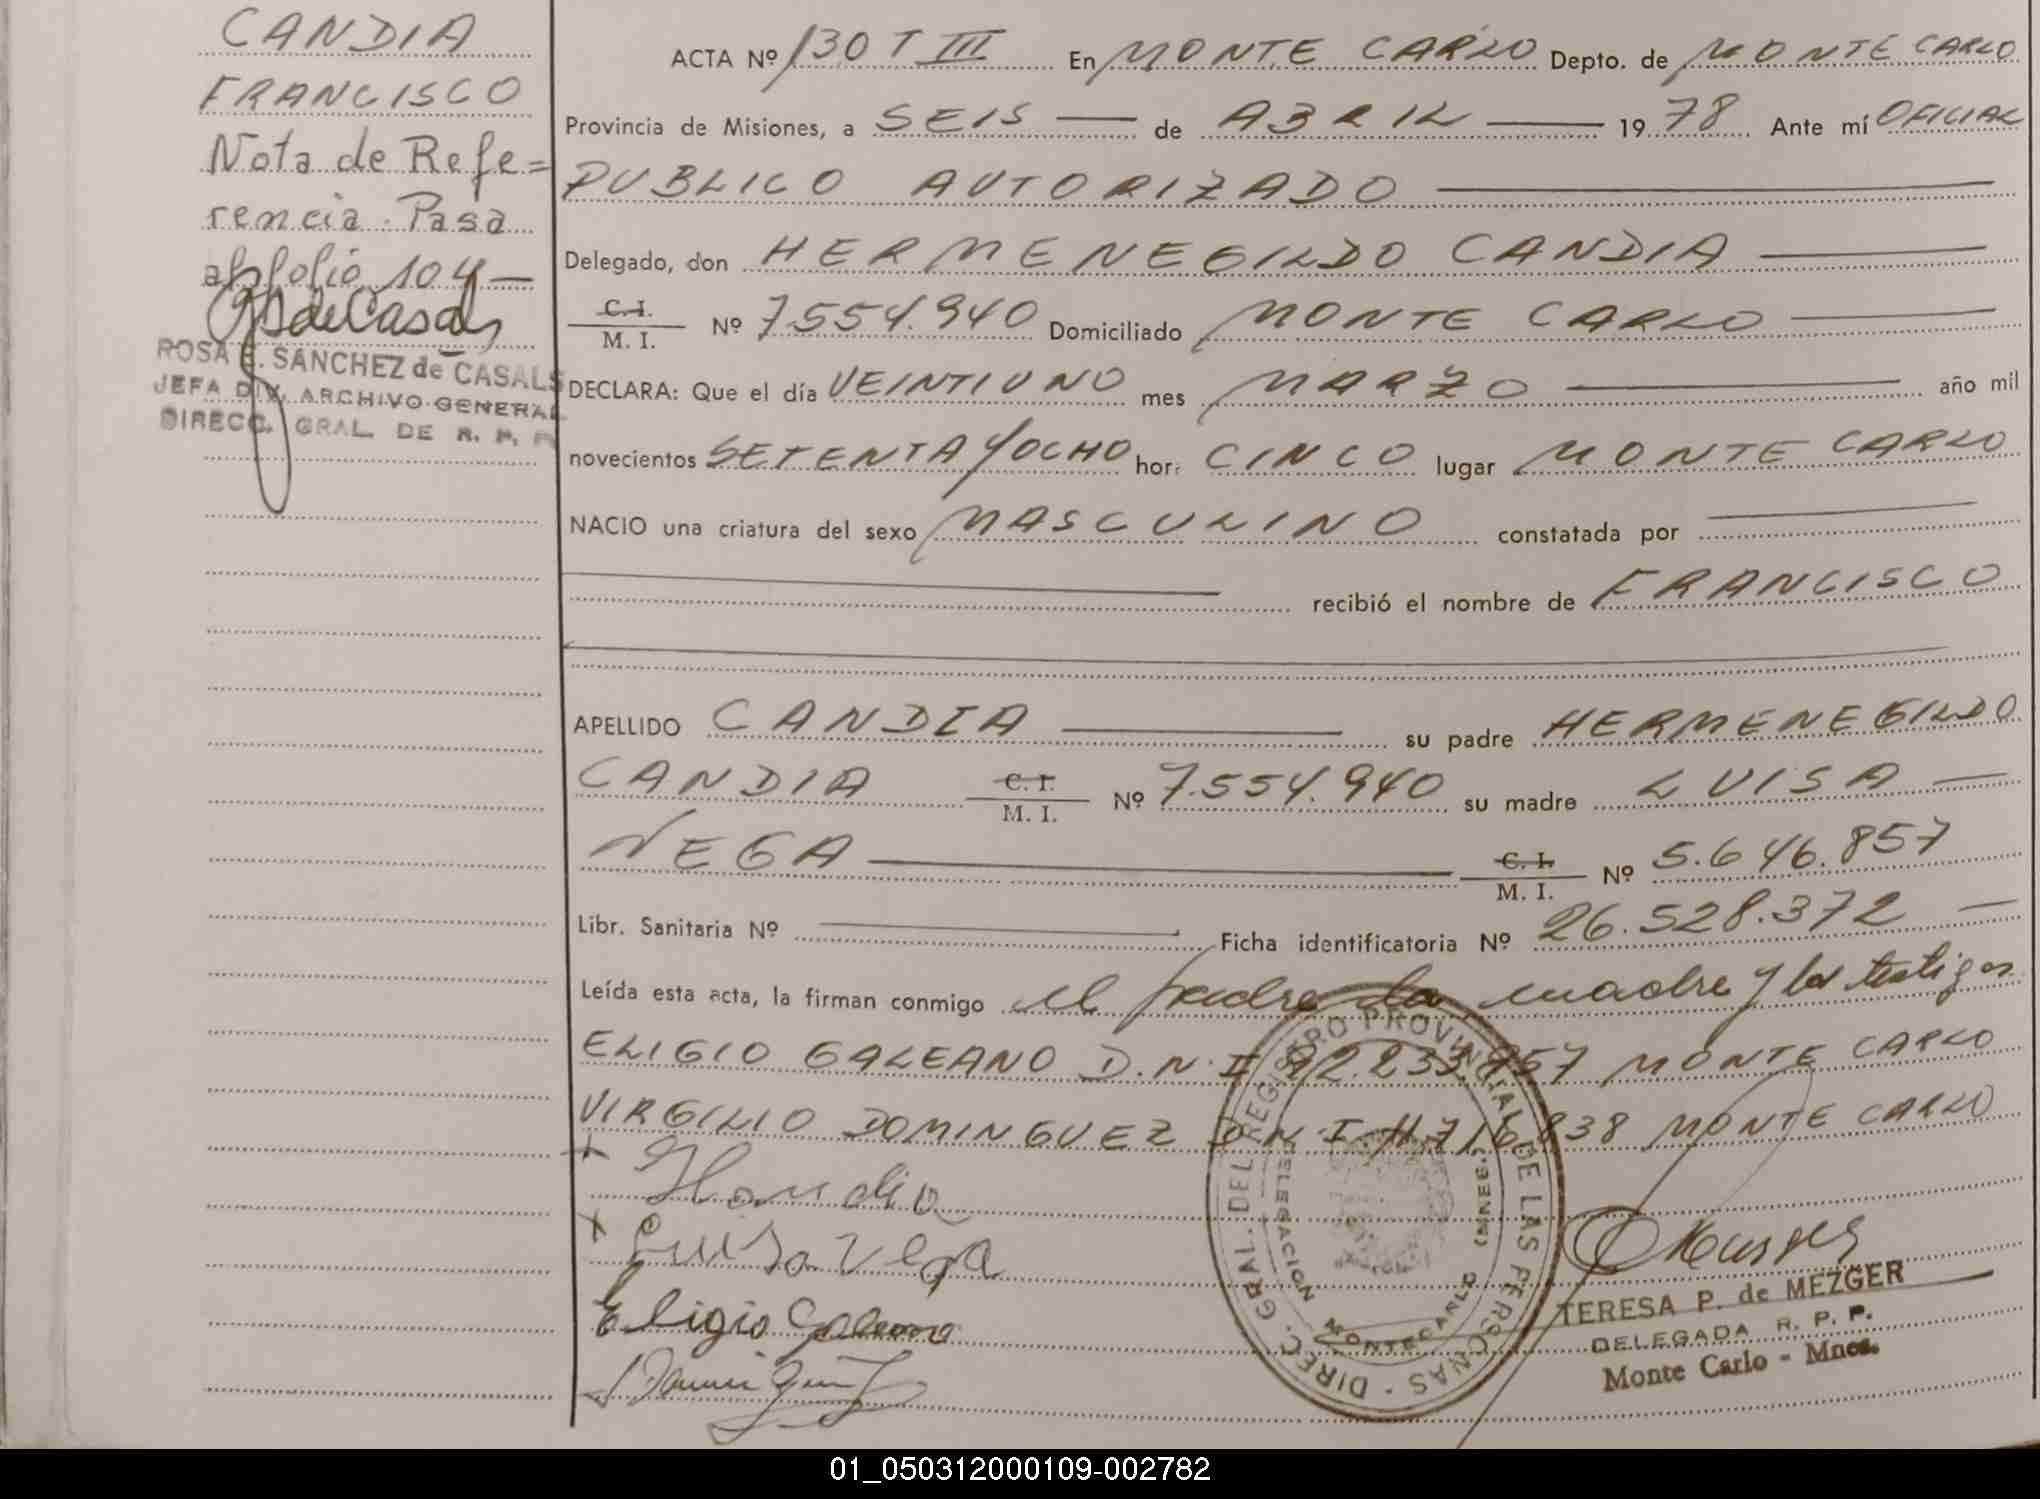 CANDIA
FRANCISCO
Nota de Refe=
rencia. Pasa
al folio 104 —
ROSA E. SANCHEZ de CASALS
JEFA DIV. ARCHIVO GENERAL
DIRECC. GRAL. DE R. P. P.
ACTA Nº 130 T III En MONTE CARLO Depto. de MONTE CARLO
Provincia de Misiones, a SEIS — de ABRIL — 19 78 Ante mí OFICIAL
PUBLICO AUTORIZADO —
Delegado, don HERMENEGILDO CANDIA —
C. I. / M. I. Nº 7.554.940 Domiciliado MONTE CARLO —
DECLARA: Que el día VEINTIUNO mes MARZO — año mil
novecientos SETENTA Y OCHO hor: CINCO lugar MONTE CARLO
NACIO una criatura del sexo MASCULINO constatada por —
— recibió el nombre de FRANCISCO
APELLIDO CANDIA — su padre HERMENEGILDO
CANDIA C. I. / M. I. Nº 7.554.940 su madre LUISA —
VEGA — C. I. / M. I. Nº 5.646.857
Libr. Sanitaria Nº — Ficha identificatoria Nº 26.528.372 —
Leída esta acta, la firman conmigo el padre la madre y los testigos
ELIGIO GALEANO D.N.I 92.233.957 MONTE CARLO
VIRGILIO DOMINGUEZ D.N.I 11.716.838 MONTE CARLO
Luisa Vega
Eligio Galeano
DIREC. GRAL. DEL REGISTRO PROVINCIAL DE LAS PERSONAS
DELEGACION MONTECARLO (MNES.)
TERESA P. de MEZGER
DELEGADA R. P. P.
Monte Carlo - Mnes.
01_050312000109-002782